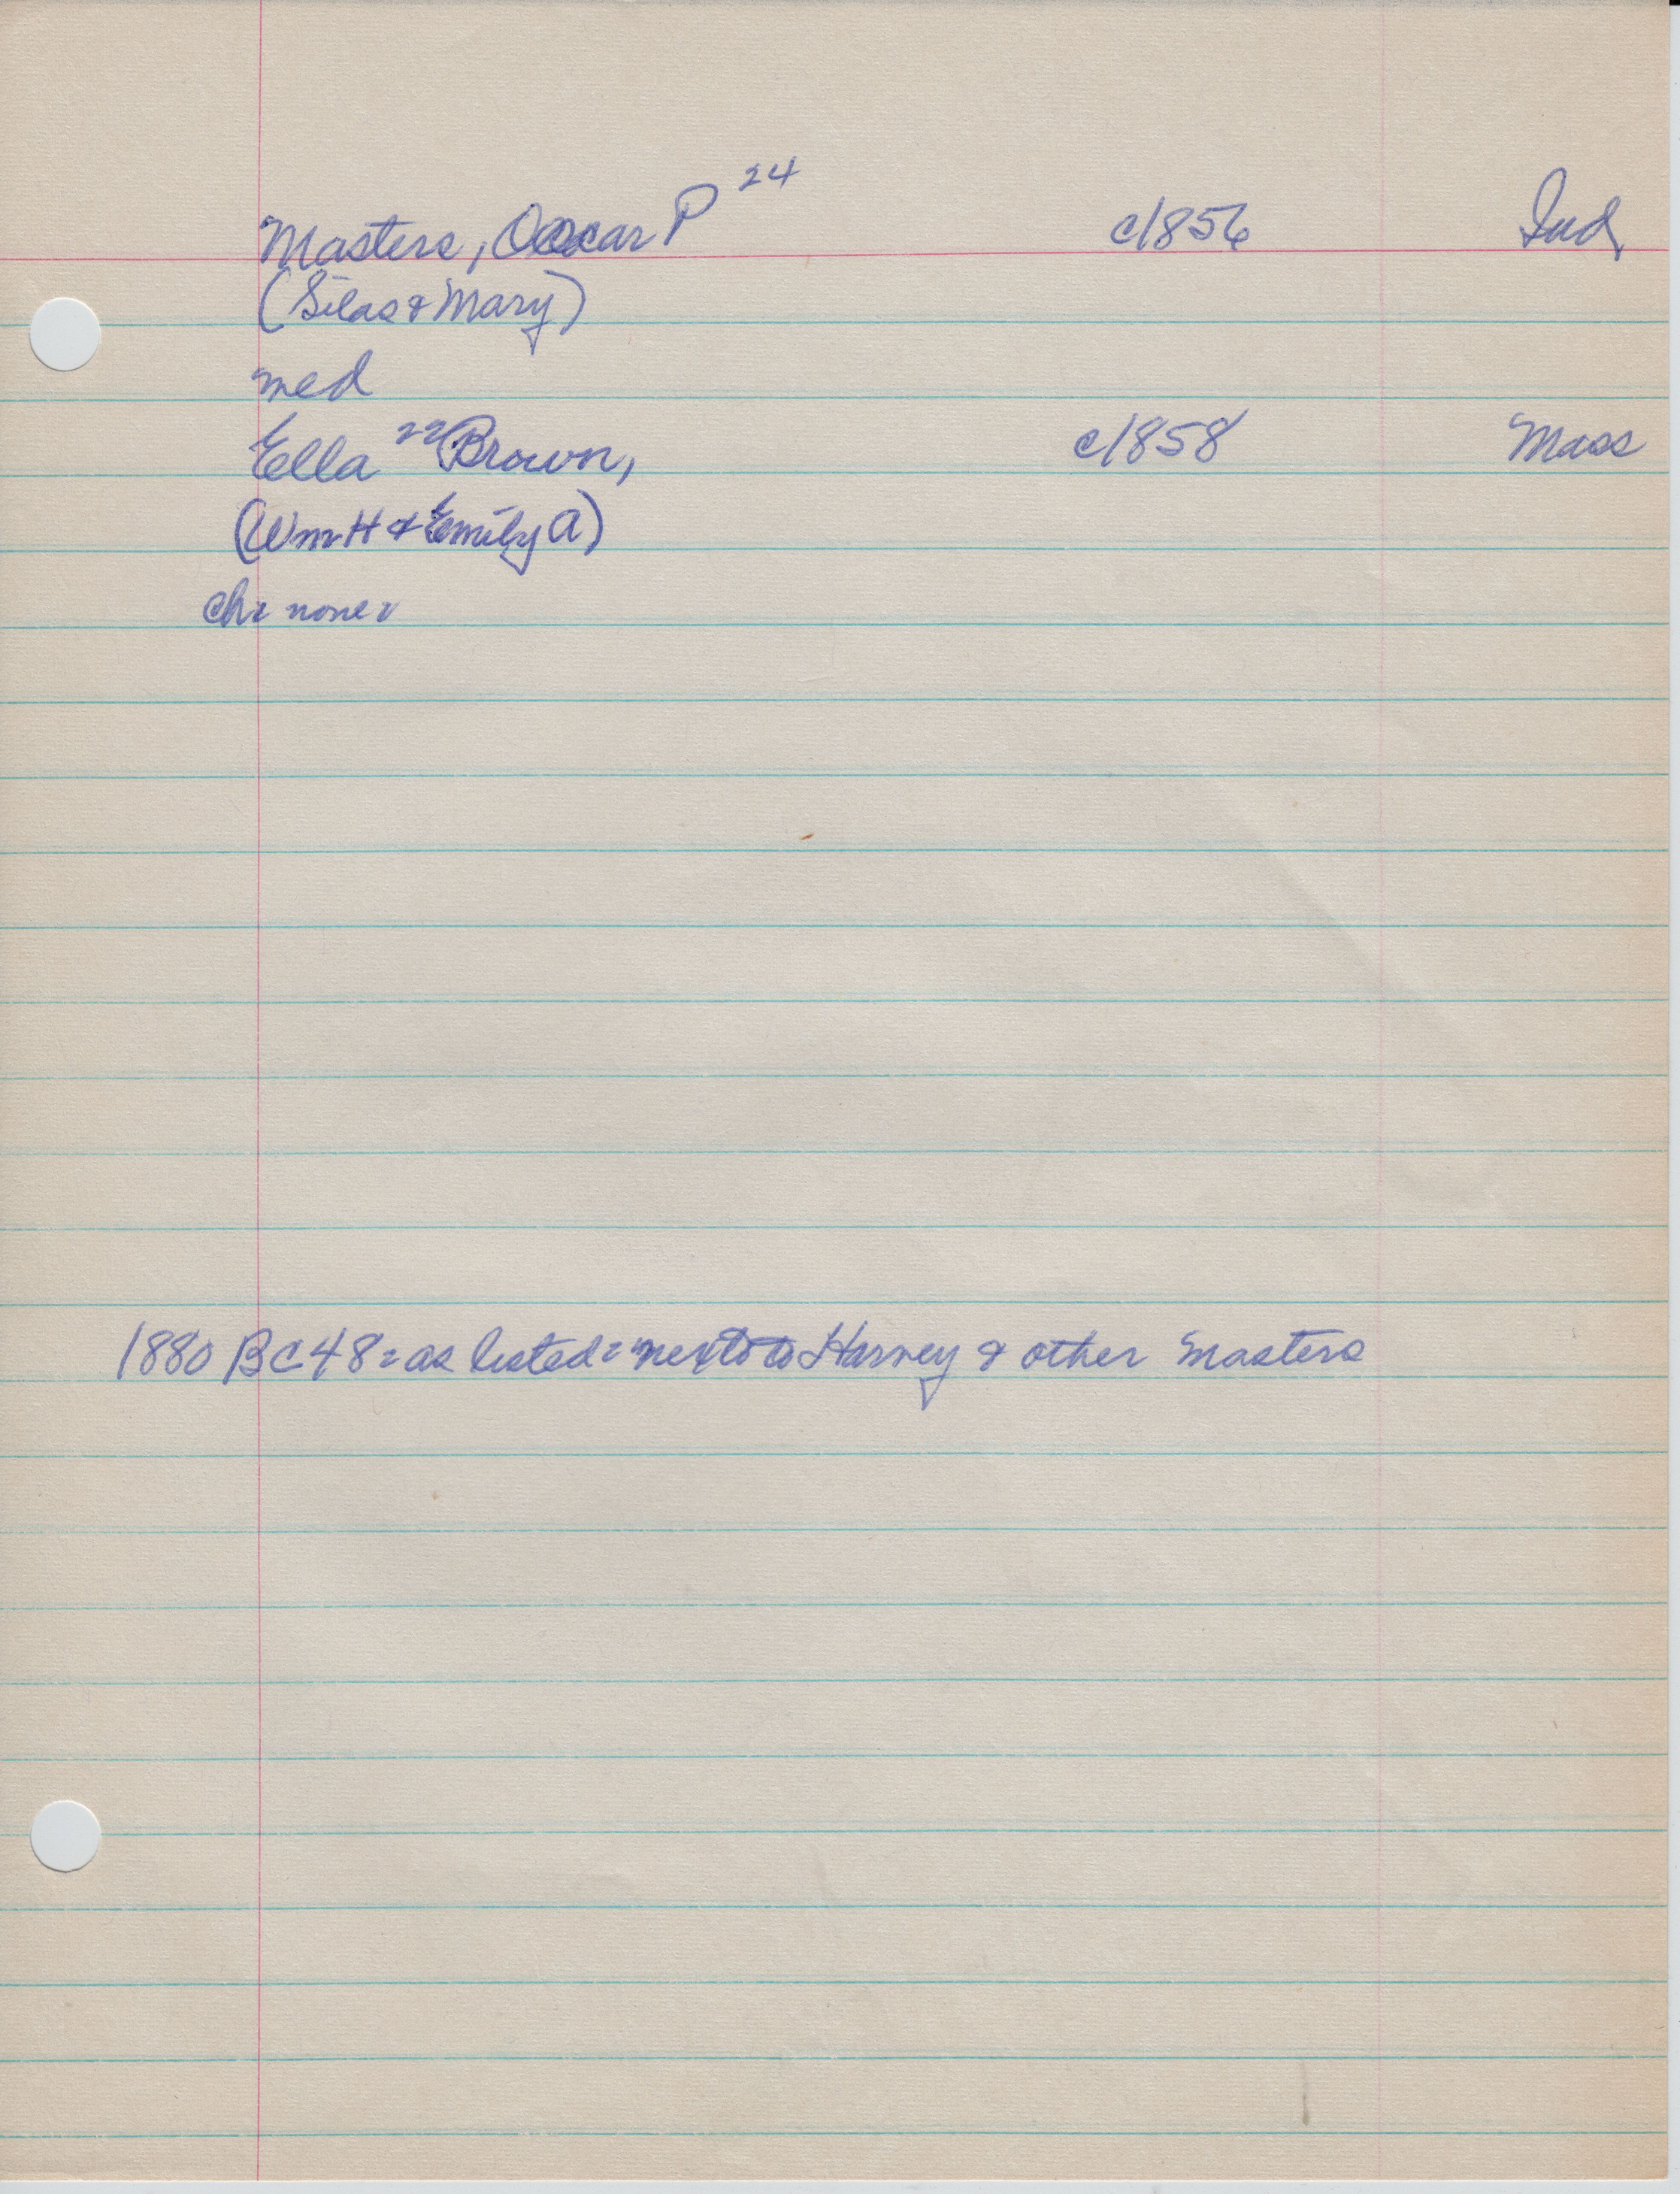 Masters, Oscar P 24 c1856 Ind,
(Silas & Mary)
med
Ella 22 Brown, c1858 Mass
(Wm H & Emily A)
ch: none:
1880 BC 48 = as listed = next to Harvey & other Masters